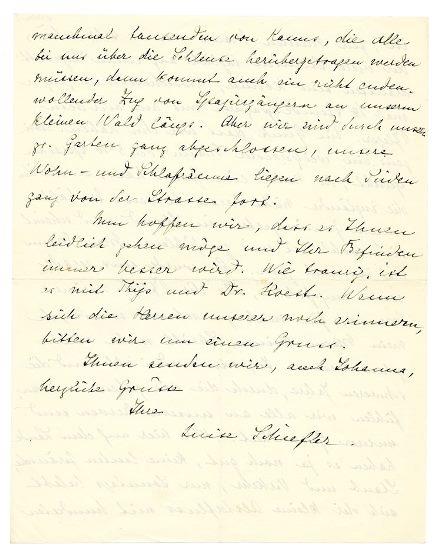 manchmal tausenden von Kanus, die alle
bei uns über die Schleuse herübergetragen werden
müssen, dann kommt auch ein nicht enden-
wollender Zug von Spaziergängern an unserm
kleinen Wald längs. Aber wir sind durch unsern
gr. Garten ganz abgeschlossen, unsere
Wohn- und Schlafräume liegen nach Süden
ganz von der Strasse fort.
Nun hoffen wir, dass es Ihnen
leidlich gehen möge und Ihr Befinden
immer besser wird. Wie traurig, ist
es mit Thijs und Dr. Hoest. Wenn
sich die Herren unserer noch erinnern,
bitten wir um einen Gruss.
Ihnen senden wir, auch Johanna,
herzliche Grüsse
Ihre
Luise Schiefler.